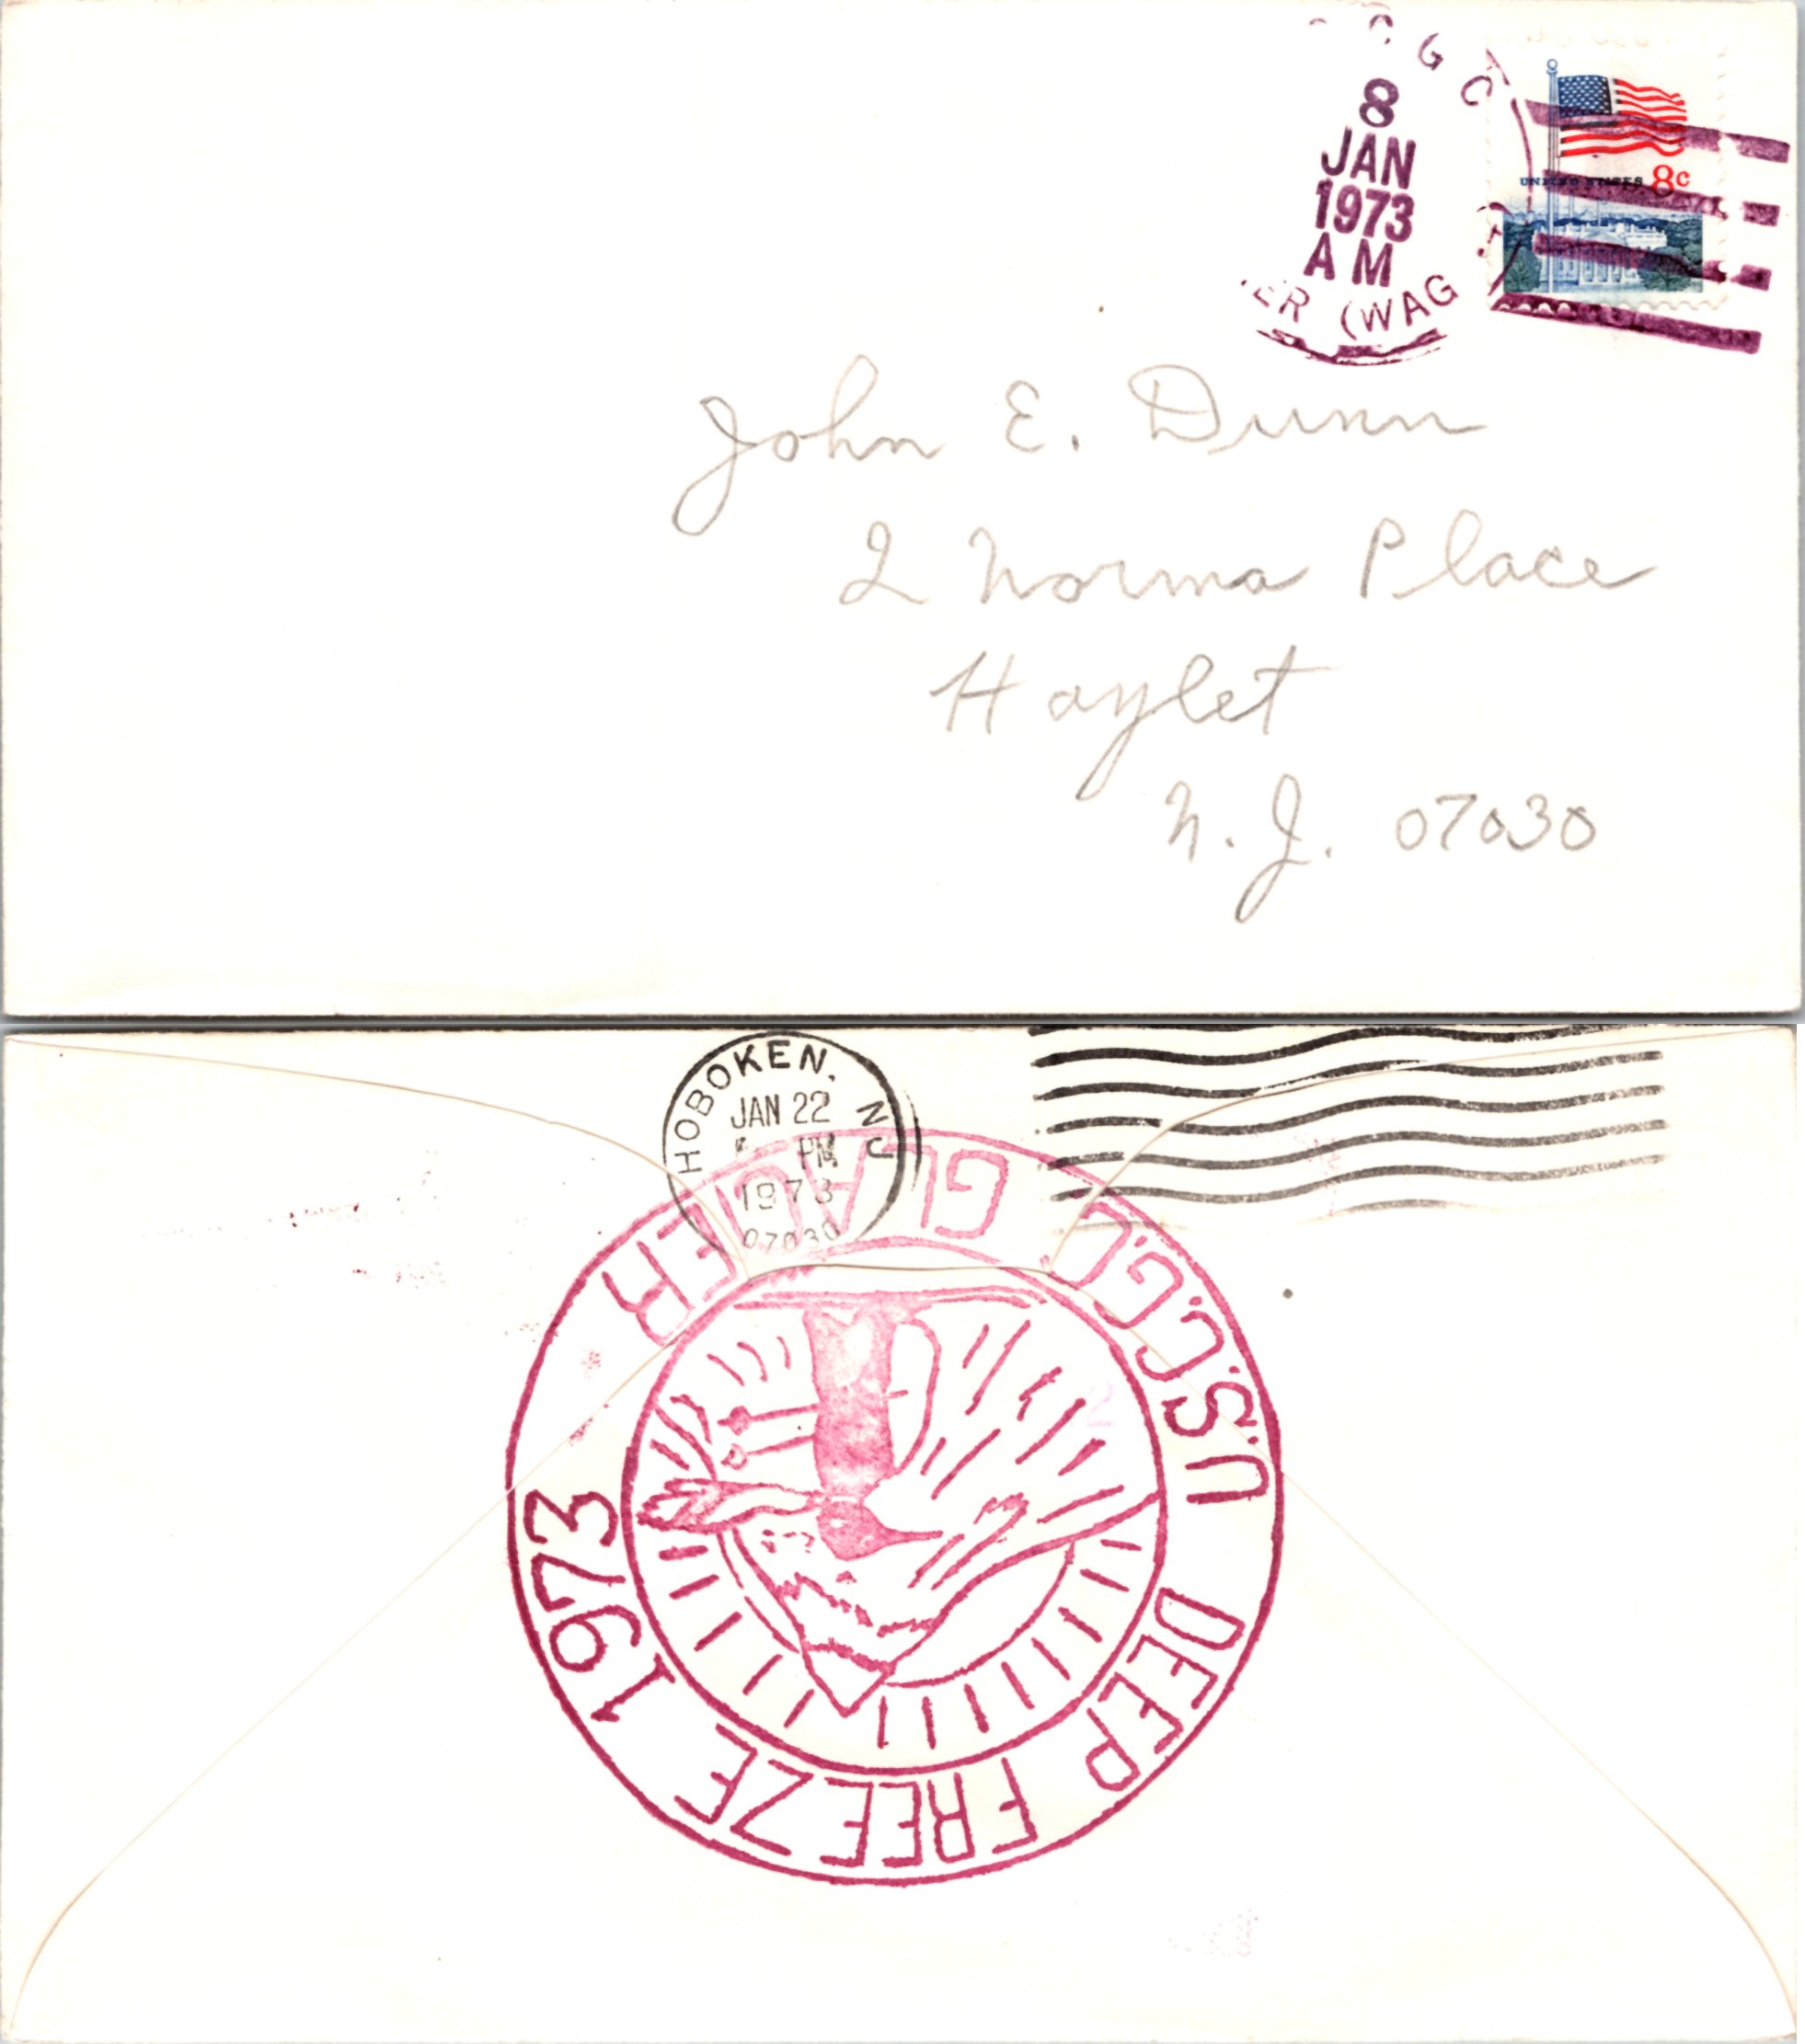 8
JAN
1973
AM
ER (WAG
UNITED STATES 8c
John E. Dunn
2 Norma Place
Hazlet
N. J. 07030
HOBOKEN, NJ
JAN 22
PM
1973
07030
U.S.C.G.C. GLACIER
DEEP FREEZE 1973